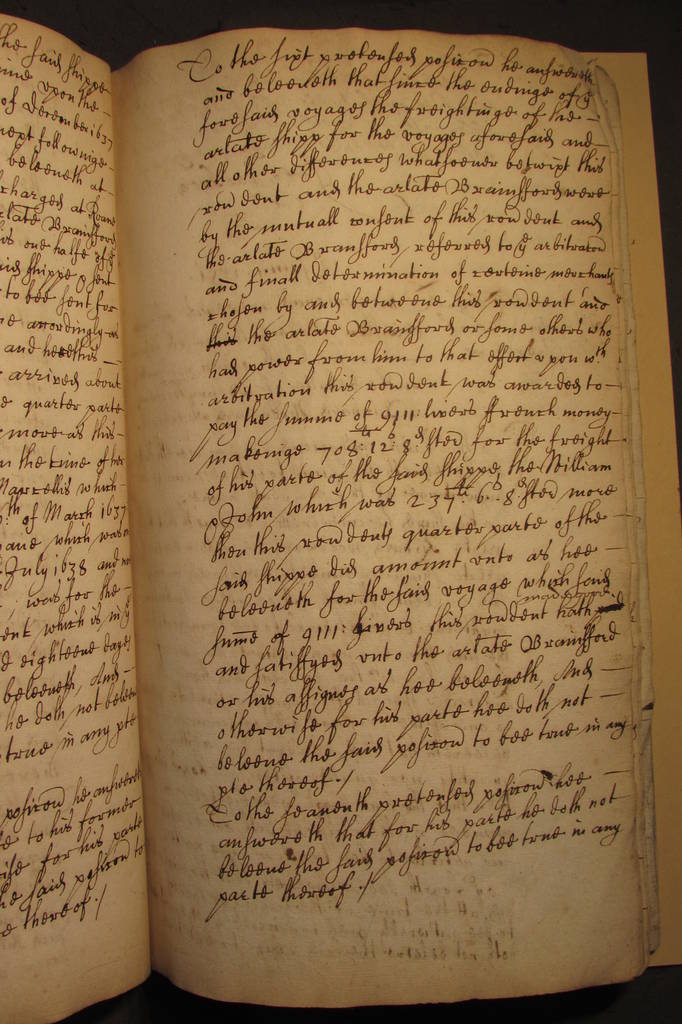 the said shippe
time upon the
of december 1637
next followinge
beleeveth at
charged at Roane
arlate Bramsford
his one halfe of ye
said shippe
to bee sent for
accordingly
and
arrived about
quarter parte
more as this
in the time of
Marcellis which
th of March 1637
ane which was
July 1638 and
was for the
ent which is in ye
eighteene dayes
beleeveth, And
he doth not beleeve
true in any pte
posicon he answereth
to his former
for his parte
the said posicon to
thereof ./
To the sixt pretensed posicon he answereth
and beleeveth that since the endinge of ye
foresaid voyages the freightinge of the
arlate shipp for the voyages aforesaid and
all other differences whatsoever betwixt this
rendent and the arlate Bramsford were
by the mutuall consent of this rendent and
the arlate Bramsford, referred to ye arbitracon
and finall determination of certeine merchants
chosen by and betweene this rendent and
this the arlate Bramsford or some others who
had power from him to that effect upon wch
arbitration this rendent was awarded to
pay the summe of 9111: livers ffrench money
makeinge 708: li 12s 8d sted for the freight
of his parte of the said shippe the William
& John which was 237: li 6s 8d sted more
then this rendents quarter parte of the
said shippe did amount unto as hee
beleeveth for the said voyage which said
summe of 9111: livers this rendent hath paid
and satisfyed unto the arlate Bramsford
or his assignes as hee beleeveth, And
otherwise for his parte hee doth not
beleeve the said posicon to bee true in any
pte thereof ./
To the seaventh pretensed posicon hee
answereth that for his parte he doth not
beleeve the said posicon to bee true in any
parte thereof ./